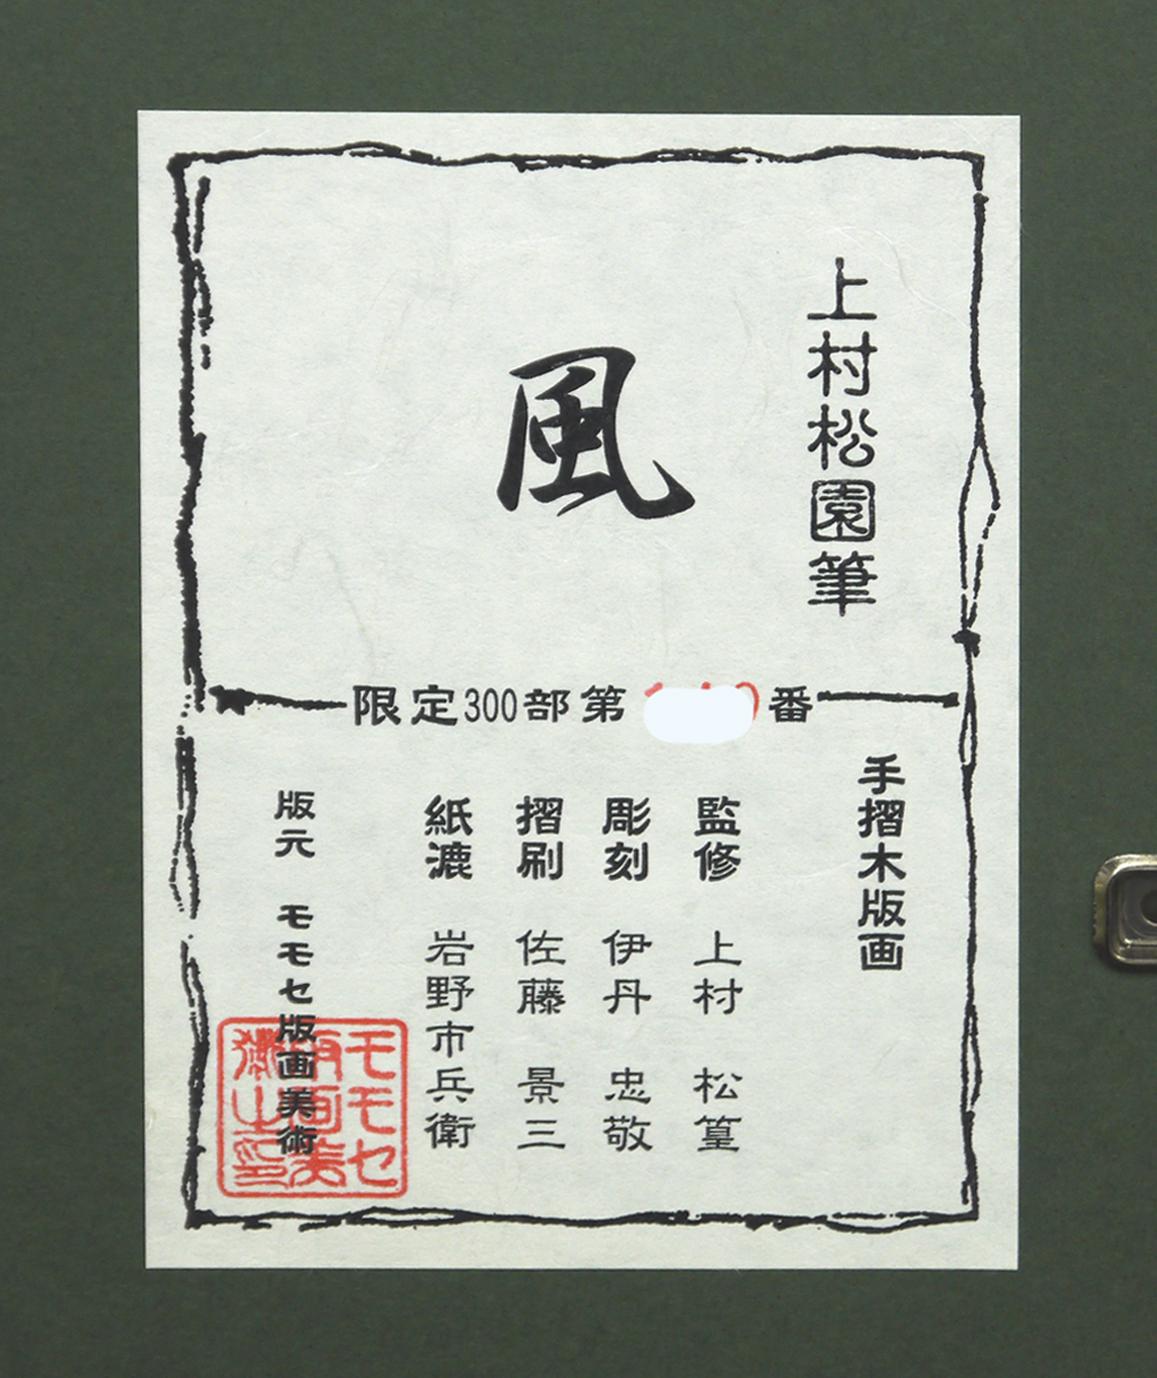 上村松園筆
風
限定300部第 番
手摺木版画
監修 上村 松篁
彫刻 伊丹 忠敬
摺刷 佐藤 景三
紙漉 岩野市兵衛
版元 モモセ版画美術
モモセ
版画美
術之印